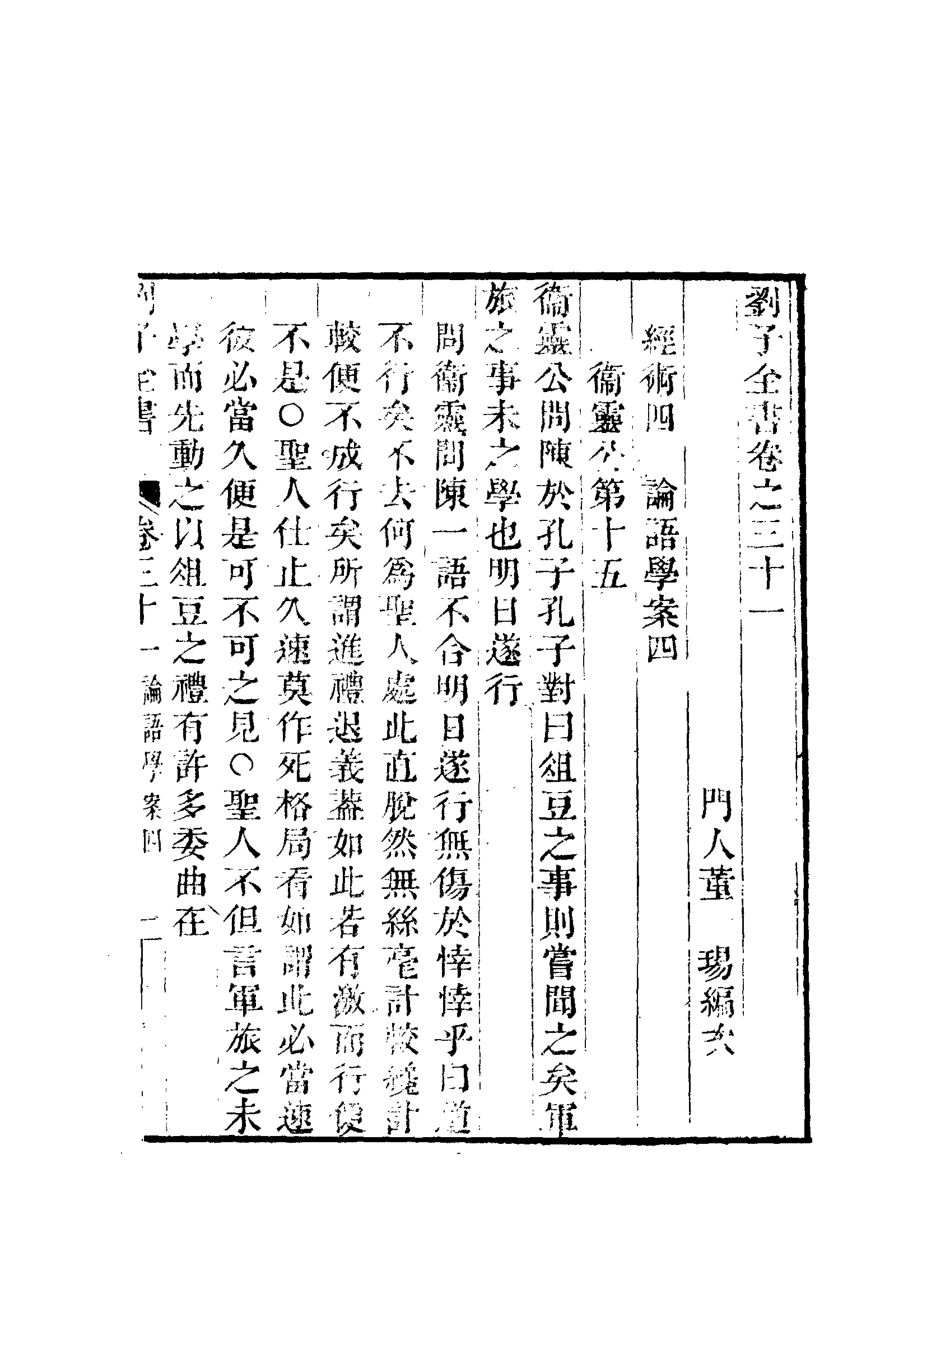 劉子全書卷之三十一
門人董 瑒編次
經術四 論語學案四
衞靈公第十五
衞靈公問陳於孔子孔子對曰俎豆之事則嘗聞之矣軍
旅之事未之學也明日遂行
問衞靈問陳一語不合明日遂行無傷於悻悻乎曰道
不行矣不去何爲聖人處此直脫然無絲毫計較纔計
較便不成行矣所謂進禮退義葢如此若有激而行便
不是○聖人仕止久速莫作死格局看如謂此必當速
彼必當久便是可不可之見○聖人不但言軍旅之未
學而先動之以俎豆之禮有許多委曲在
劉子全書 卷三十一 論語學案四 一